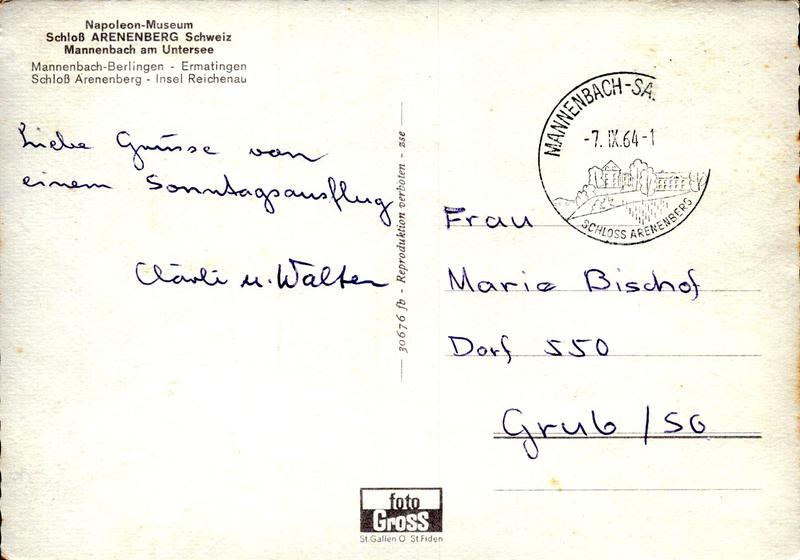 Napoleon-Museum
Schloß ARENENBERG Schweiz
Mannenbach am Untersee
Mannenbach-Berlingen - Ermatingen
Schloß Arenenberg - Insel Reichenau
Liebe Grüsse von
einem Sonntagsausflug
Clärli u. Walter
30676 fb - Reproduktion verboten - zse
MANNENBACH-SA.
-7. IX. 64-1
SCHLOSS ARENENBERG
Frau
Marie Bischof
Dorf 550
Grub / SG
foto
Gross
St.Gallen O St.Fiden